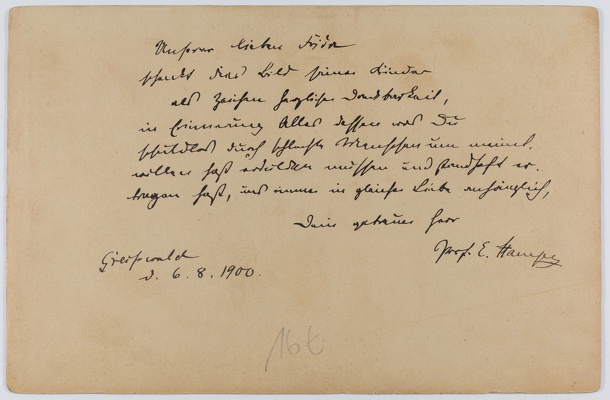 Unserer lieben
schenkt dies Bild seiner Kinder
als Zeichen herzlicher Dankbarkeit,
in Erinnerung Alles dessen was Du
schuldlos durch schlechte Menschen um meinet-
willen hast erdulden müssen und standhaft er-
tragen hast, und immer in gleicher Liebe anhänglich,
Dein getreuer Herr
Prof. E.
Greifswald
d. 6. 8. 1900.
16t